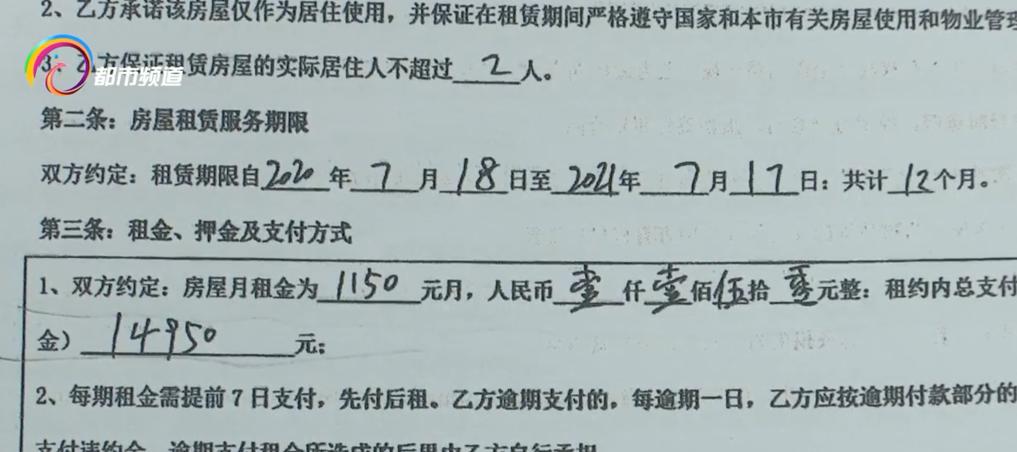 2、乙方承诺该房屋仅作为居住使用，并保证在租赁期间严格遵守国家和本市有关房屋使用和物业管理
3、乙方保证租赁房屋的实际居住人不超过2人。
都市频道
第二条：房屋租赁服务期限
双方约定：租赁期限自2020年7月18日至2021年7月17日：共计12个月。
第三条：租金、押金及支付方式
1、双方约定：房屋月租金为1150元月，人民币壹仟壹佰伍拾零元整：租约内总支付
金）14950元；
2、每期租金需提前7日支付，先付后租。乙方逾期支付的，每逾期一日，乙方应按逾期付款部分的
支付违约金，逾期支付租金所造成的后果由乙方自行承担